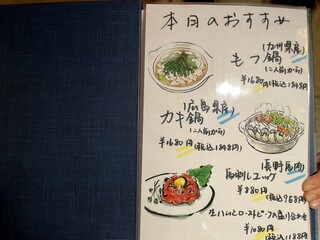 本日のおすすめ
(九州県産)
もつ鍋
(二人前から)
¥1680円(税込1848円)
(広島県産)
カキ鍋
(二人前から)
¥1680円(税込1848円)
(長野馬肉)
馬刺しユッケ
¥880円
(税込968円)
生ハムとローストビーフの盛り合わせ
¥1080円
(税込1188円